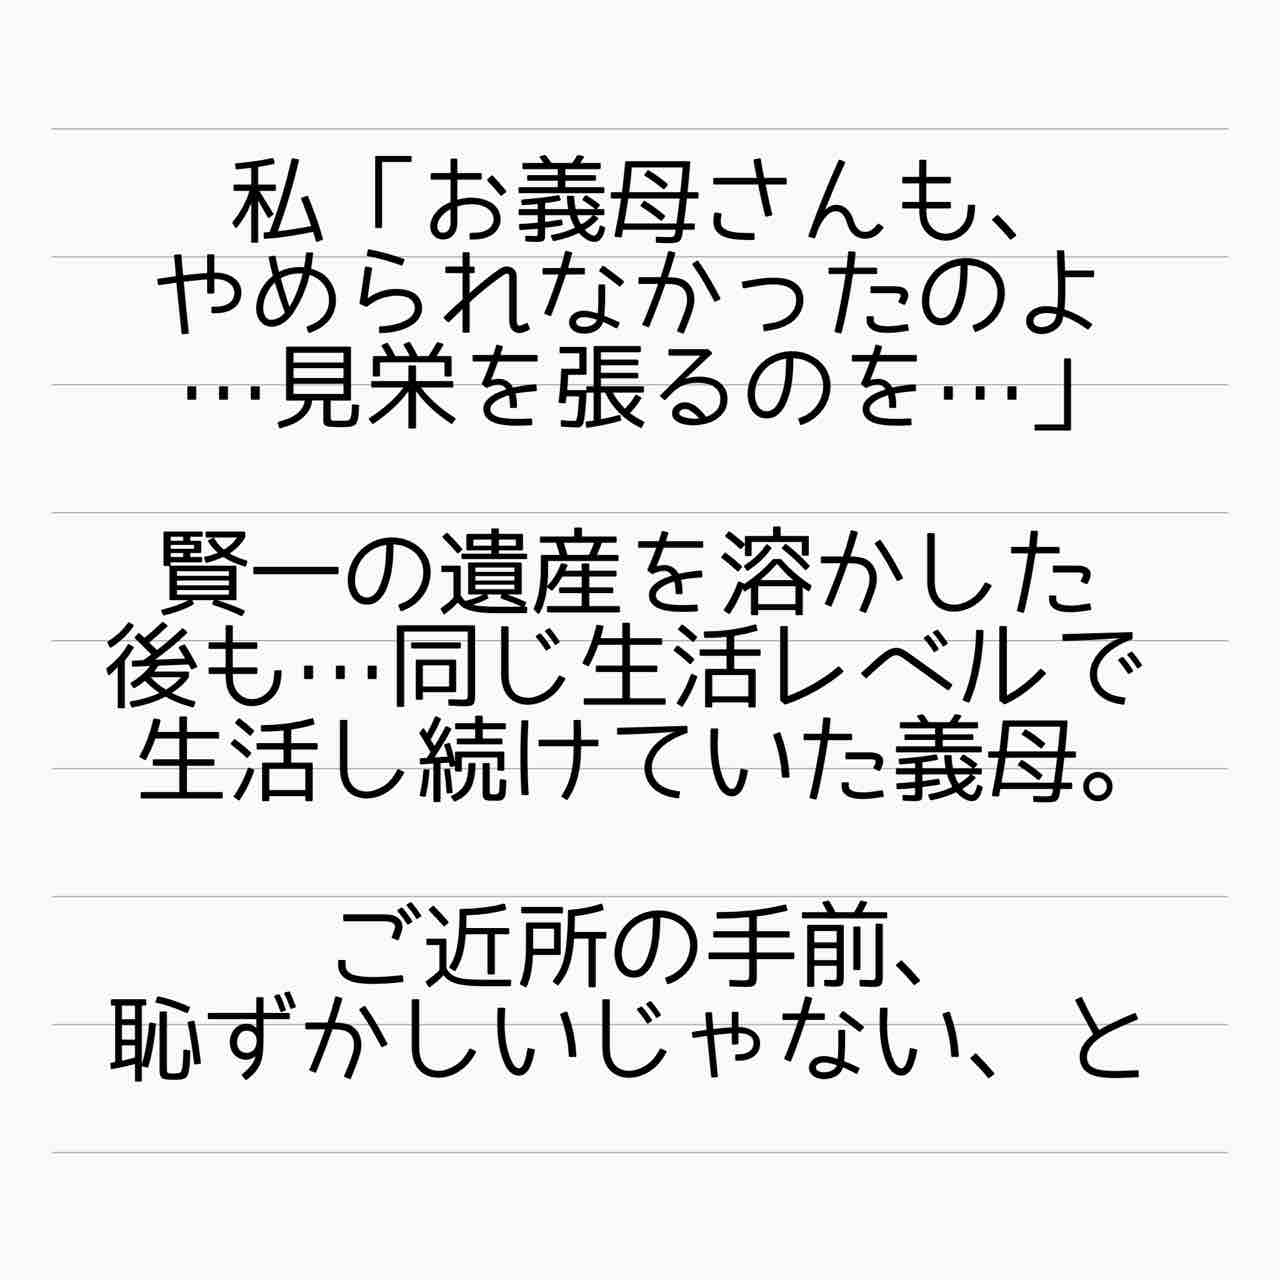 私「お義母さんも、
やめられなかったのよ
…見栄を張るのを…」
賢一の遺産を溶かした
後も…同じ生活レベルで
生活し続けていた義母。
ご近所の手前、
恥ずかしいじゃない、と